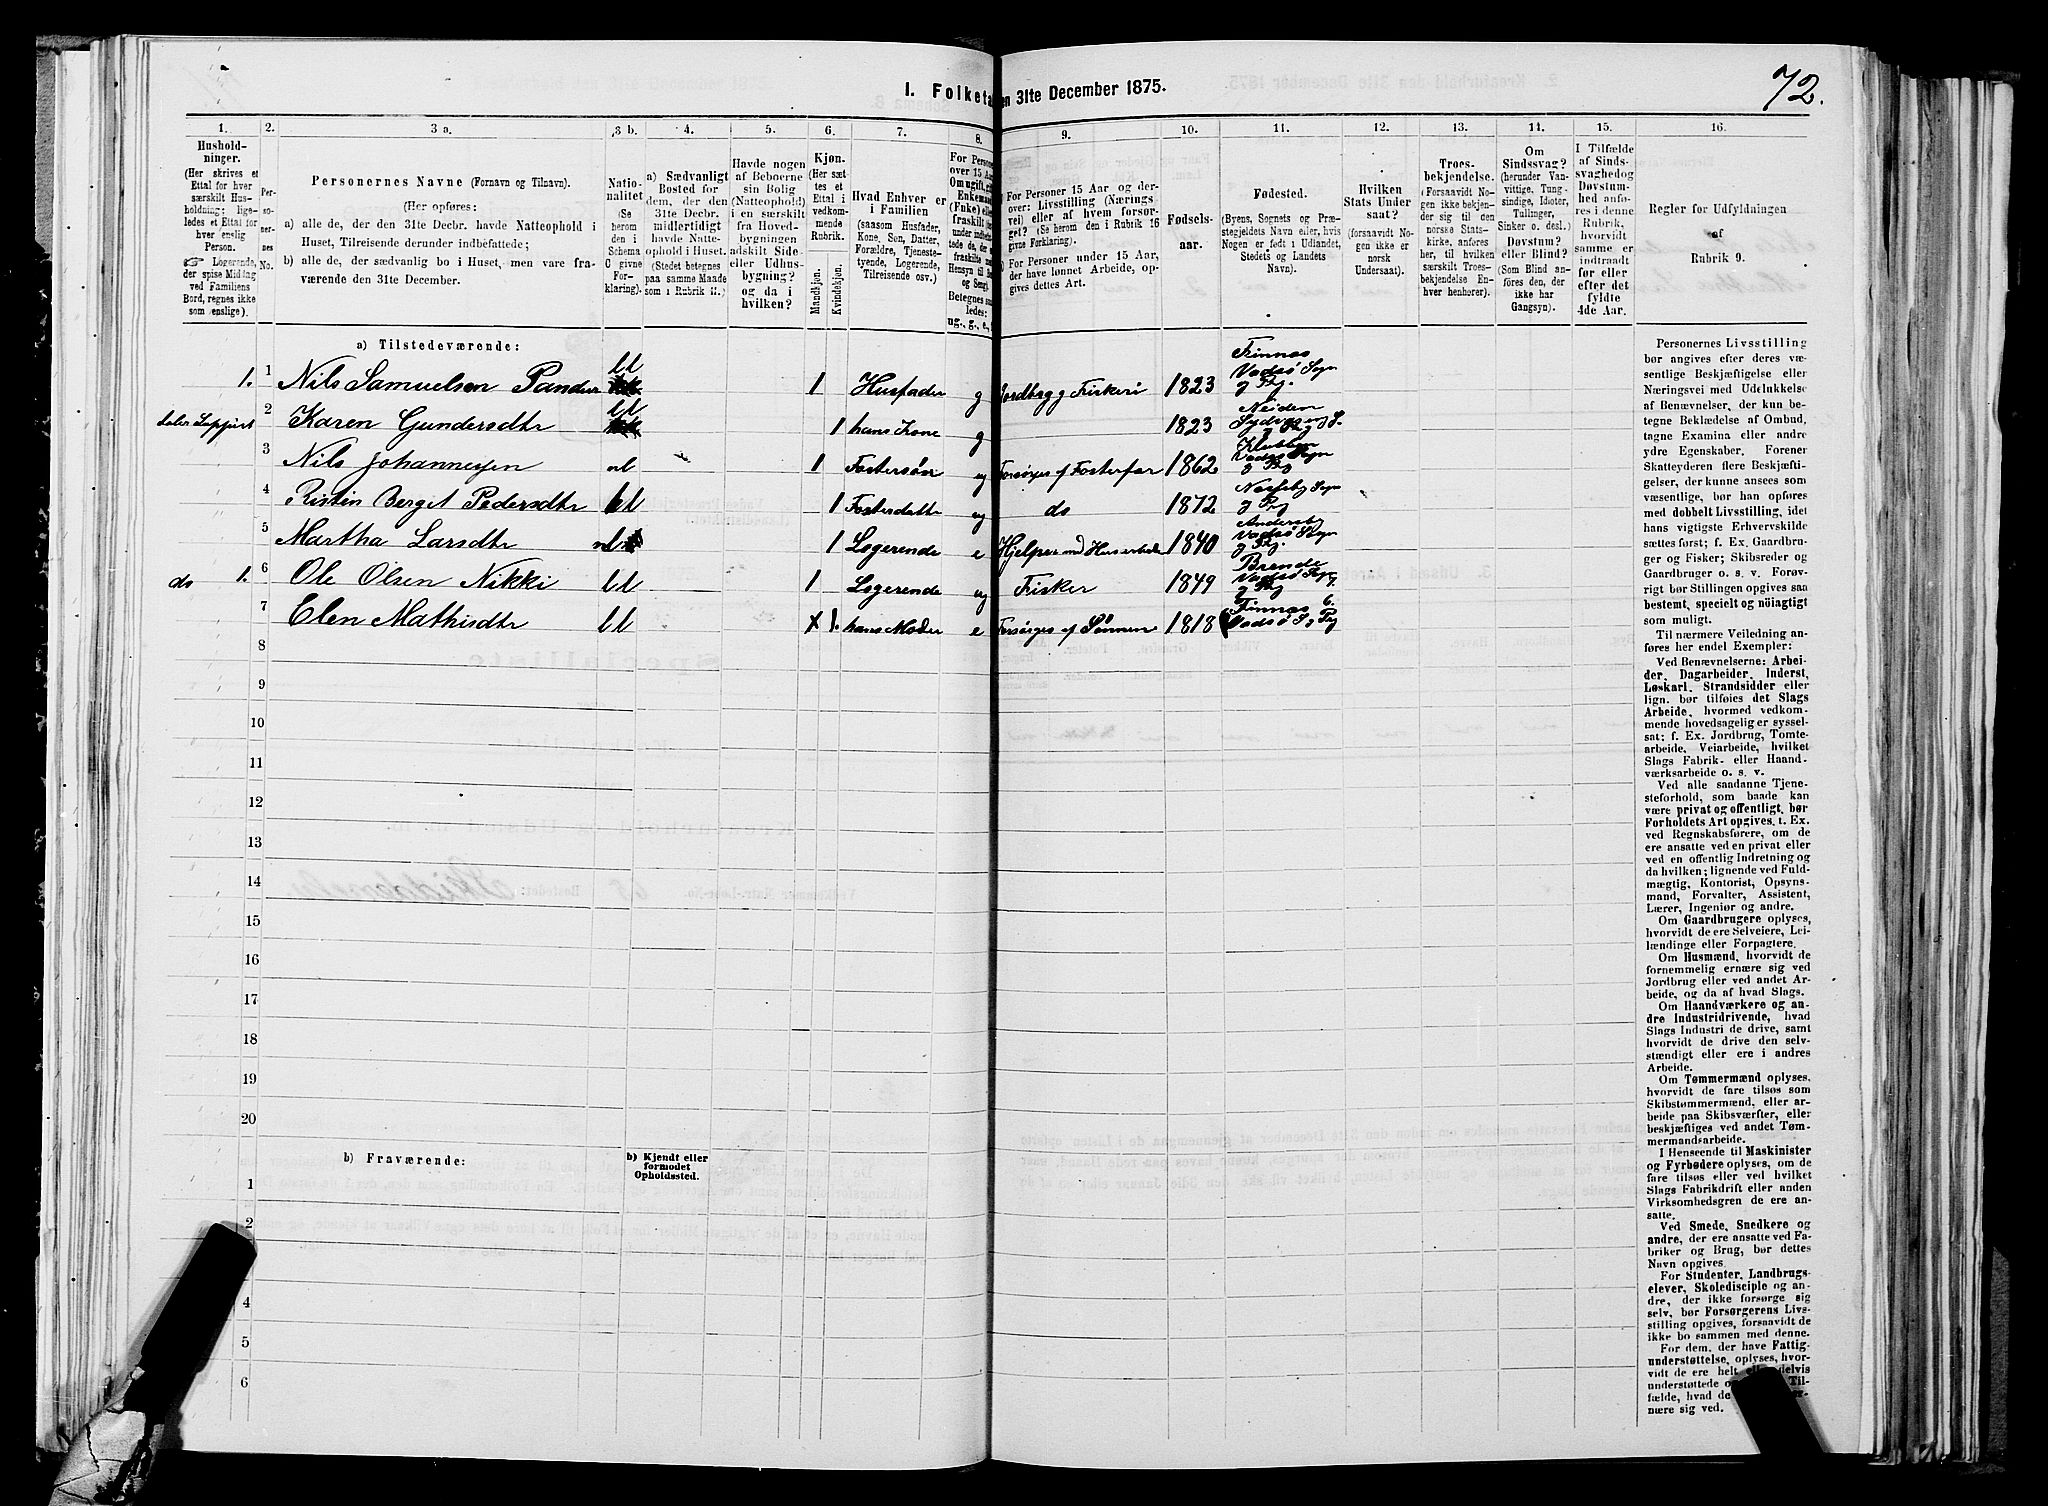 72.
I. Folketa en 31te December 1875.
1. 2. 3 a. 3 b. 4. 5. 6. 7. 8. 9. 10. 11. 12. 13. 14. 15. 16.
Husholdninger.
(Her skrives et
Ettal for hver
særskilt Husholdning;
ligeledes et Ettal for
hver enslig
Person.
☞ Logerende,
der spise Middag
ved Familiens
Bord, regnes ikke
som enslige).
Personernes No.
Personernes Navne (Fornavn og Tilnavn).
(Her opføres:
a) alle de, der den 31te Decbr. havde Natteophold i
Huset, Tilreisende derunder indbefattede;
b) alle de, der sædvanlig bo i Huset, men vare fraværende
den 31te December.
Nationalitet
(Se
herom
den i
Schema
C givne
Forklaring).
a) Sædvanligt
Bosted for
dem, der den
31te Decbr.
midlertidigt
havde Natteophold
i Huset.
(Stedet betegnes
paa samme Maade
som i Rubrik 11.)
Havde nogen
af Beboerne
sin Bolig
(Natteophold)
i en særskilt
fra Hovedbygningen
adskilt Side-
eller Udhusbygning?
og da i
hvilken?
Kjøn.
(Her sættes
et
Ettal i
vedkommende
Rubrik.
Mandkjøn.
Kvindekjøn.
Hvad Enhver er
i Familien
(saasom Husfader,
Kone, Søn, Datter,
Forældre, Tjenestetyende,
Logerende,
Tilreisende osv.)
For Persone
over 15 Aa
Om ugift, gi
Enkema
(Enke) elle
fraskilt
Betegnes saa
ledes:
ug., g., e.,
For Personer 15 Aar og derover:
Livsstilling (Næringsvei)
eller af hvem forsørget?
(Se herom den i Rubrik 16
givne Forklaring).
For Personer under 15 Aar,
der have lønnet Arbeide, opgives
dettes Art.
Fødselsaar.
Fødested.
(Byens, Sognets og Præstegjeldets
Navn eller, hvis
Nogen er født i Udlandet,
Stedets og Landets
Navn).
Hvilken
Stats Undersaat?
(forsaavidt Nogen
ikke er
norsk
Undersaat).
Troesbekjendelse.
(Forsaavidt Nogen
ikke bekjender
sig til den
norske Statskirke,
anføres
her, til hvilken
særskilt Troesbekjendelse
Enhver
henhører).
Om
Sindssvag?
(herunder Vanvittige,
Tungsindige,
Idioter,
Tullinger,
Sinker o. desl.)
Døvstum?
eller Blind?
(Som Blind anføres
den, der
ikke har
Gangsyn).
I Tilfælde
af Sindssvaghed
og
Døvstumhed
anføres
i denne
Rubrik,
hvorvidt
samme er
indtraadt
før eller
efter det
fyldte
4de Aar.
Regler for Udfyldningen
af
Rubrik 9.
a) Tilstedeværende:
1. 1 Nils Samuelsen Pander ll 1 Husfader g Jordbrug g Fiskeri 1823 Finnæs Vadsø Sogn g Pg.
2 Karen Gundersdtr ll 1 hans Kone g 1823 Neiden
3 Nils Johannesen nl 1 Fostersøn ug Forsørges af Fosterfar 1862 Klubben Vadsø Sogn g Pg
4 Ristin Bergit Pedersdtr ll 1 Fosterdatte ug do 1872 Nesseby Sogn g Pg
5 Martha Larsdtr nl 1 Logerende e Hjelper med Husarbeide 1840 Andersby Vadsø Sogn g Pg.
do 1. 6 Ole Olsen Nikki ll 1 Logerende ug Fisker 1849 Brende Vadsø Sogn g Pg
7 Elen Mathisdtr ll 1. hans Moder e Forsørges af Sønnen 1818 Finnæs Vadsø S g Pg
8
9
10
11
12
13
14
15
16
17
18
19
20
b) Fraværende:
b) Kjendt eller
formodet
Opholdssted.
1
2
4
5
6
Personernes Livsstilling
bør angives efter deres væsentlige
Beskjæftigelse eller
Næringsvei med Udelukkelse
af Benævnelser, der kun betegne
Beklædelse af Ombud,
tagne Examina eller andre
ydre Egenskaber. Forener
Skatteyderen flere Beskjæftigelser,
der kunne ansees som
væsentlige, bør han opgives
med dobbelt Livsstilling, idet
hans vigtigste Erhvervskilde
sættes først; f. Ex. Gaardbruger
og Fisker; Skibsreder og
Gaardbruger o. s. v. Forøvrigt
bør Stillingen opgives saa
bestemt, specielt og nøiagtigt
som muligt.
Til nærmere Veiledning anføres
her endel Exempler:
Ved Benævnelserne: Arbeider,
Dagarbeider, Inderst,
Løskarl, Strandsidder eller
lign. bør tilføies det Slags
Arbeide, hvormed vedkommende
hovedsagelig er sysselsat;
f. Ex. Jordbrug, Tomtearbeide,
Veiarbeide, hvilket
Slags Fabrik- eller Haandværksarbeide
o. s. v.
Ved alle saadanne Tjenesteforhold,
som baade kan
være privat og offentligt, bør
Forholdets Art opgives. t. Ex.
ved Regnskabsførere, om de
ere ansatte ved en privat eller
ved en offentlig Indretning og
da hvilken; lignende ved Fuldmægtig,
Kontorist, Opsynsmand,
Forvalter, Assistent,
Lærer, Ingeniør og andre.
Om Gaardbrugere oplyses,
hvorvidt de ere Selveiere, Leilændinge
eller Forpagtere.
Om Husmænd, hvorvidt de
fornemmelig ernære sig ved
Jordbrug eller ved andet Arbeide,
og da af hvad Slags.
Om Haandværkere og andre
Industridrivende, hvad
Slags Industri de drive, samt
hvorvidt de drive den selvstændigt
eller ere i andres
Arbeide.
Om Tømmermænd oplyses,
hvorvidt de fare tilsøs som
Skibstømmermænd, eller arbeide
paa Skibsværfter, eller
beskjæftiges ved andet Tømmermandsarbeide.
I Henseende til Maskinister
og Fyrbødere oplyses, om de
fare tilsøs eller ved hvilket
Slags Fabrikdrift eller anden
Virksomhedsgren de ere ansatte.
Ved Smede, Snedkere og
andre, der ere ansatte ved Fabriker
og Brug, bør dettes
Navn opgives.
For Studenter, Landbrugselever,
Skoledisciple og andre,
der ikke forsørge sig
selv, bør Forsørgerens Livsstilling
opgives, forsaavidt de
ikke bo sammen med denne.
For dem, der have Fattigunderstøttelse,
oplyses, hvorvidt
de ere helt elvis
understøttede